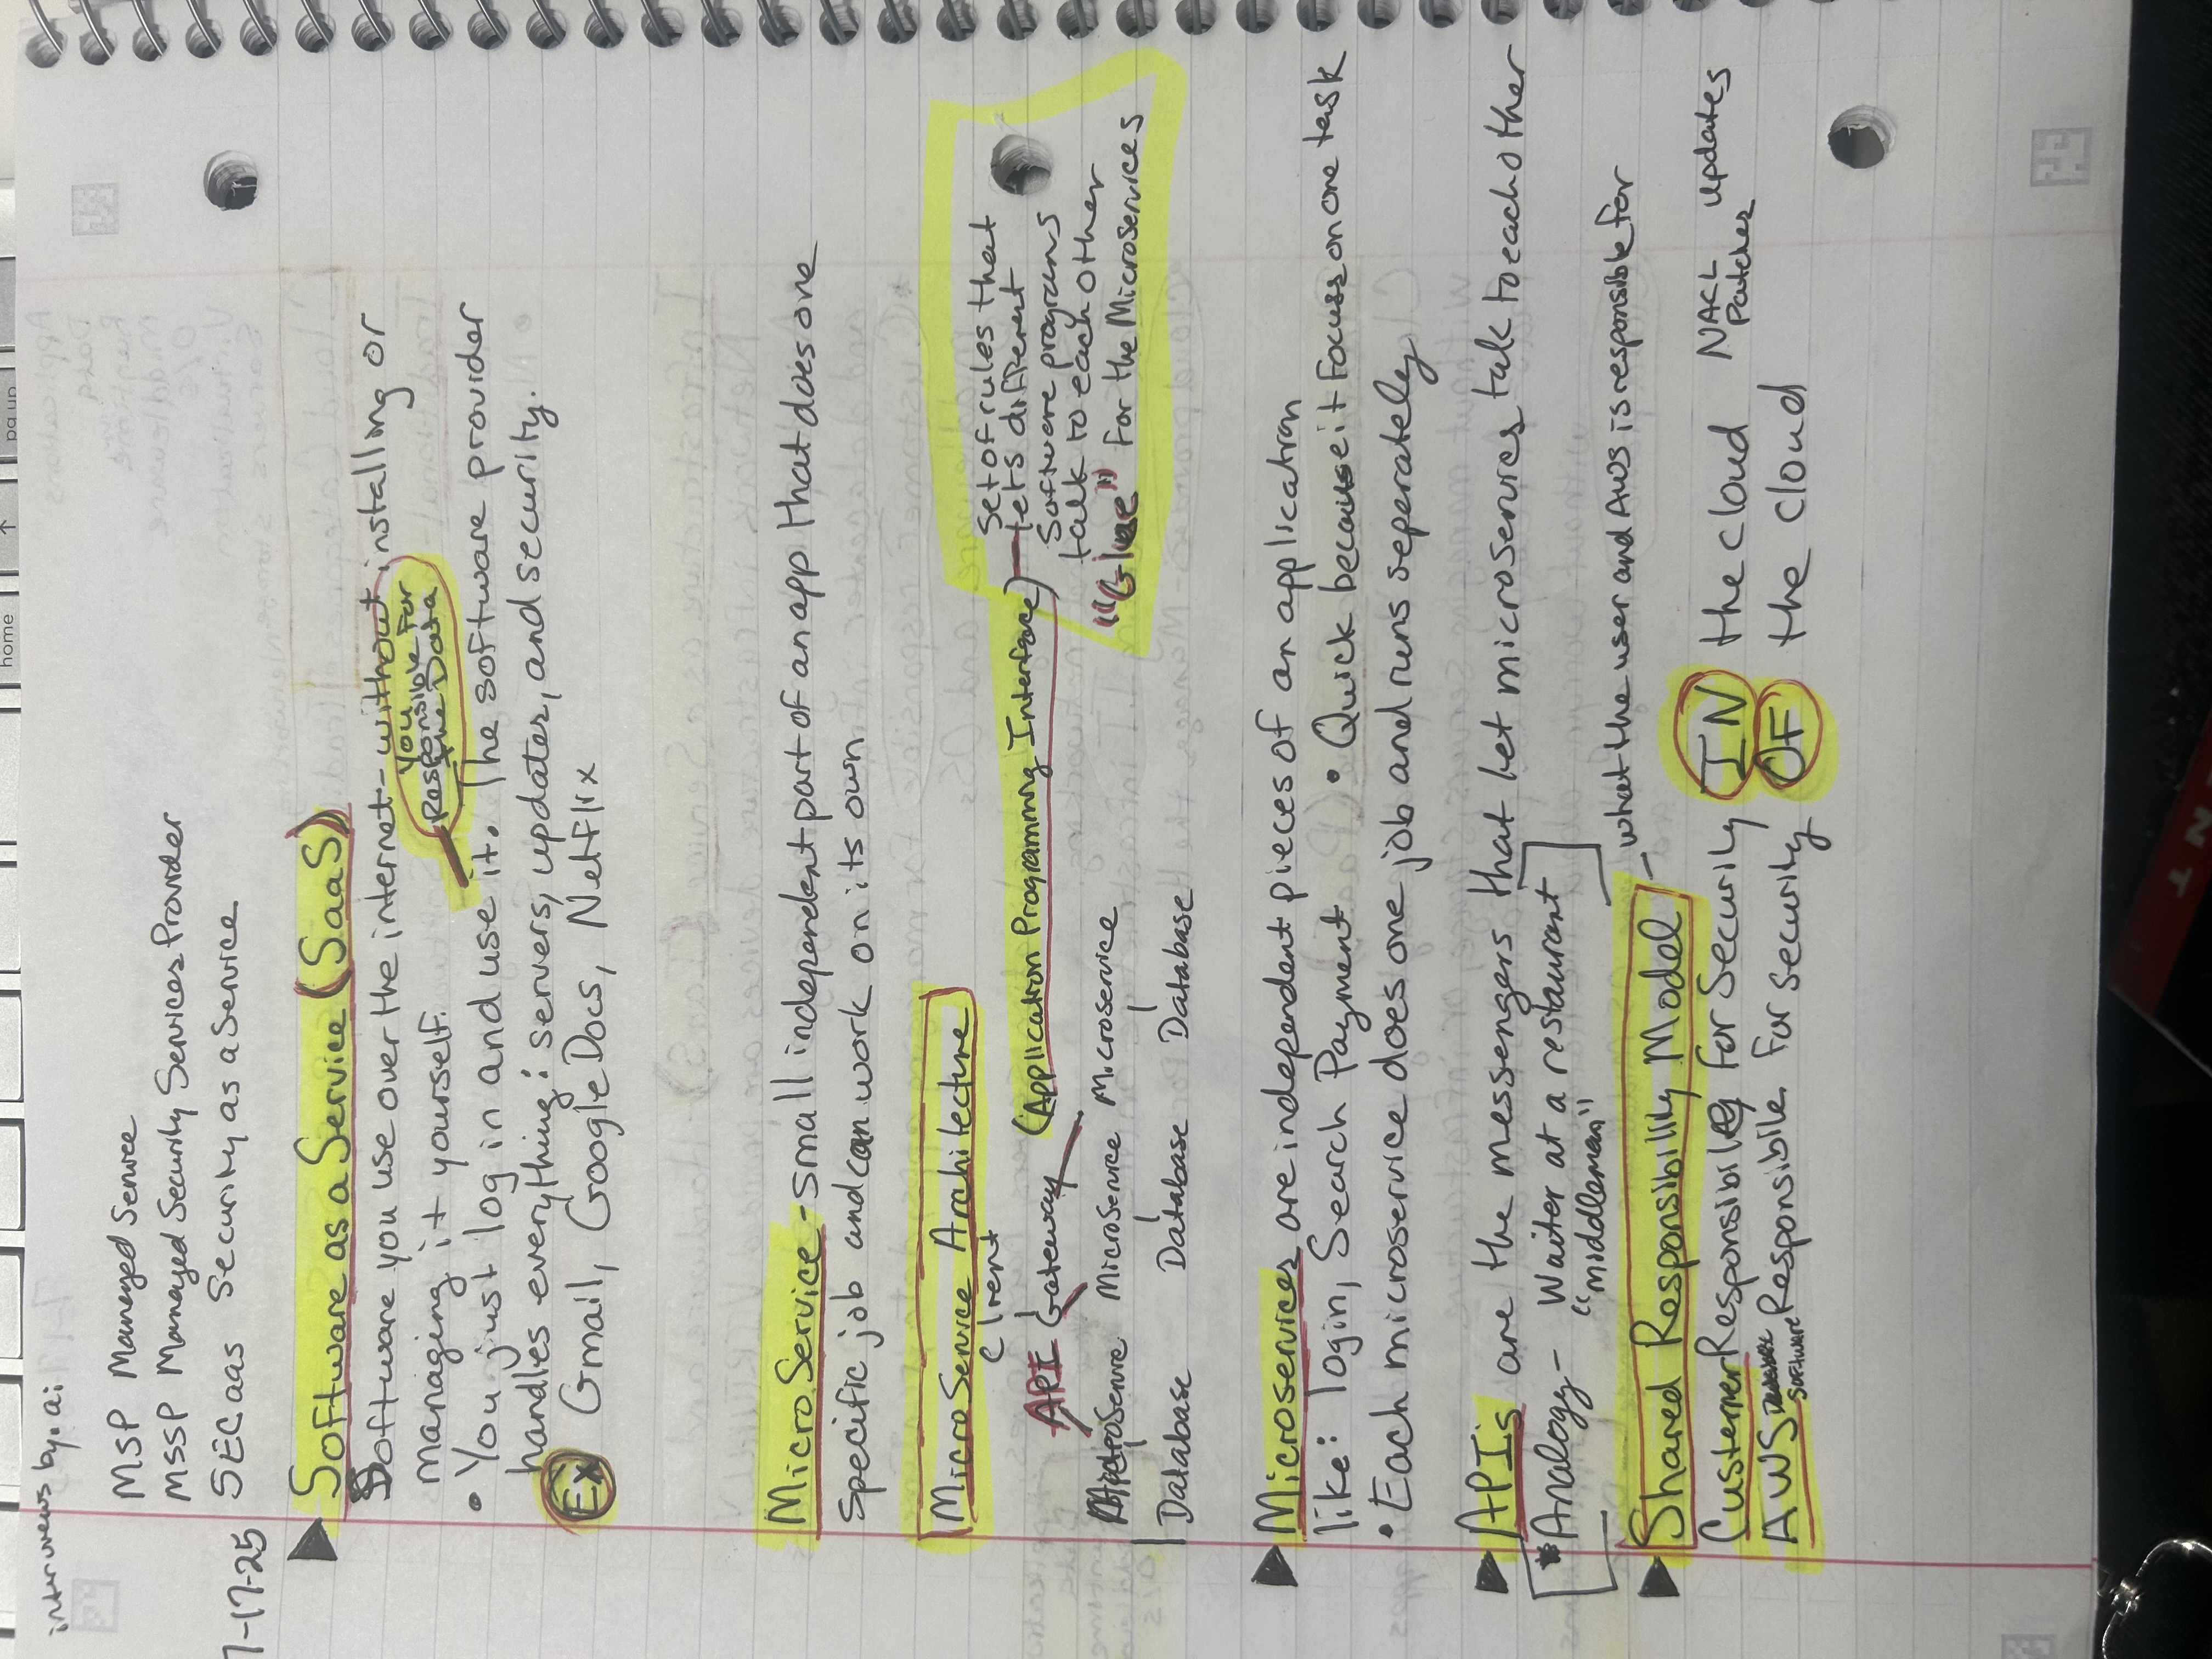 home ↑ pg up
interviews by.ai
MSP Managed Service
MSSP Managed Security Services Provider
7-17-25 SECaas Security as a Service
Software as a Service (SaaS)
Software you use over the internet - without installing or
you
Responsible For
the Data
managing it yourself.
• You just log in and use it. The software provider
handles everything: servers, updates, and security.
Ex Gmail, Google Docs, Netflix
MicroService - small independent part of an app that does one
specific job and can work on its own
MicroService Architecture
Client
API Gateway (Application Programming Interface)
set of rules that
lets different
software programs
talk to each other
"Glue" for the Microservices
MicroService Microservice Microservice
Database Database Database
Microservices are independent pieces of an application
like: login, Search Payment • Quick because it Focuses on one task
• Each microservice does one job and runs seperately
APIs are the messengers that let microservices talk to each other
*Analogy - Waiter at a restaurant
"middleman"
Shared Responsibility Model - what the user and AWS is responsible for
Customer Responsible for Security IN the cloud NACL updates
Patches
AWS Database Responsible for security OF the cloud
Software